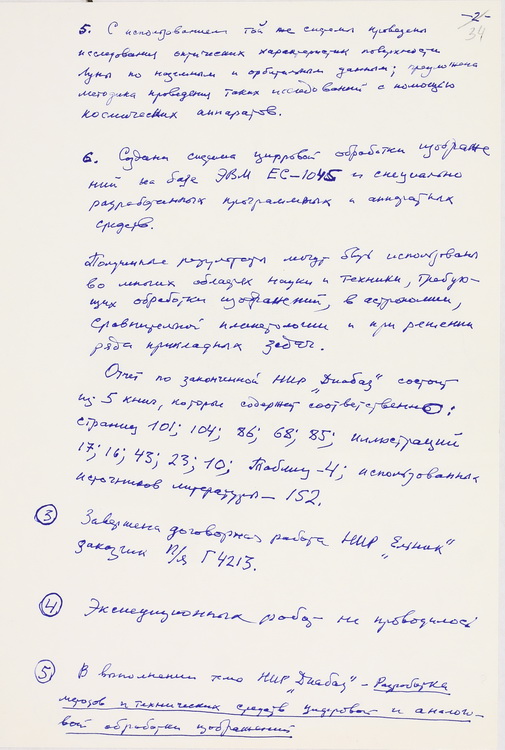 -2-
34
5. С использованием той же системы проведены
исследования оптических характеристик поверхности
Луны по наземным и орбитальным данным; предложена
методика проведения таких исследований с помощью
космических аппаратов.
6. Создана система цифровой обработки изображе
ний на базе ЭВМ ЕС-1045 и специально
разработанных программных и аппаратных
средств.
Полученные результаты могут быть использованы
во многих областях науки и техники, требую-
щих обработки изображений, в астрономии,
сравнительной планетологии и при решении
ряда прикладных задач.
Отчет по законченной НИР „Диабаз" состоит
из 5 книг, которые содержат соответственно:
страниц 101; 104; 86; 68; 85; иллюстраций
17; 16; 43; 23; 10; Таблиц-4; использованных
источников литературы - 152.
3 Завершена договорная работа НИР
заказчик П/я Г4213.
4 Экспедиционных работ не проводилось
5 В выполнении темы НИР „Диабаз" - Разработка
методов и технических средств цифровой и аналого-
вой обработки изображений